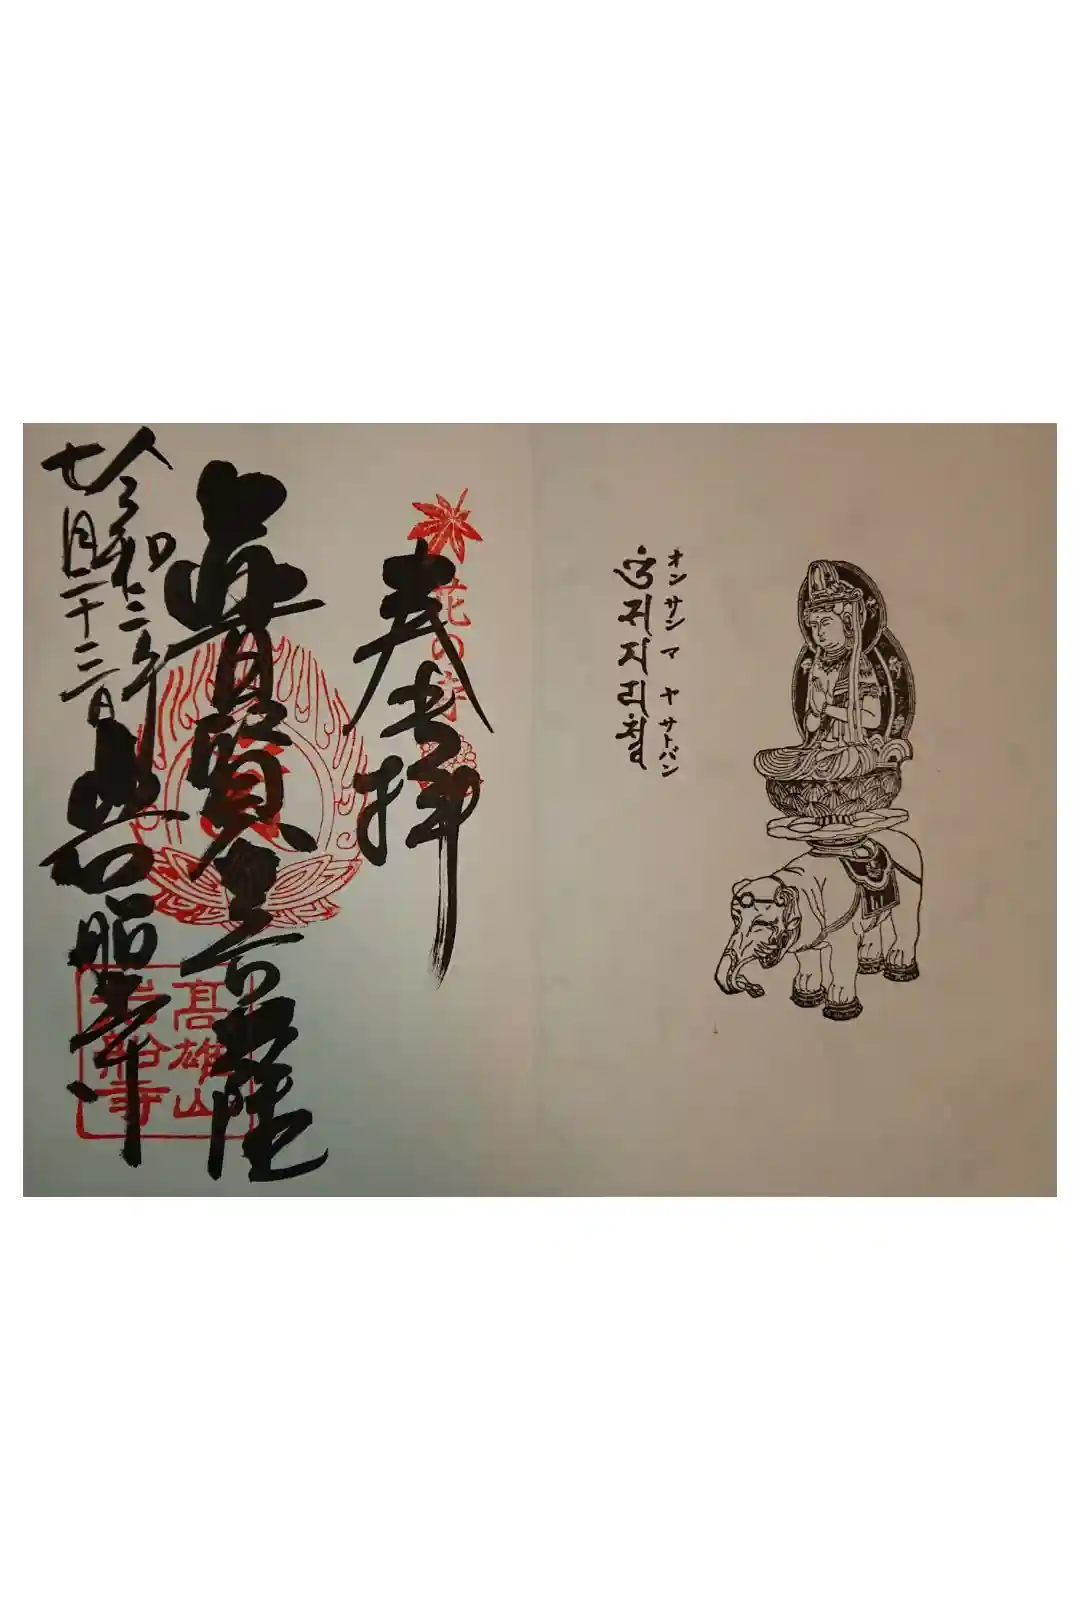 オンサンマヤサトバン
花の寺
奉拝
普賢菩薩
令和二年
七月二十三日
岩船寺
髙雄山
岩船寺